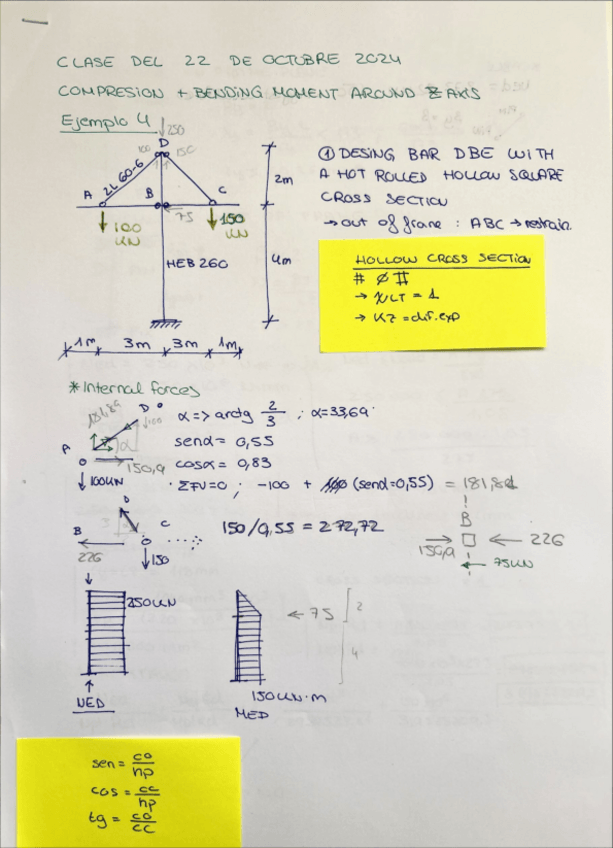 CLASE DEL 22 DE OCTUBRE 2024
COMPRESION + BENDING MOMENT AROUND Z AXIS
Ejemplo 4
250
D
100 150
2L 60-6
A B C
75
100 KN
150 KN
HEB 260
2m
4m
1m 3m 3m 1m
① DESING BAR DBE WITH
A HOT ROLLED HOLLOW SQUARE
CROSS SECTION
→ out of frame : ABC → restrain
HOLLOW CROSS SECTION
→ χLT = 1
→ Kz = dif. exp
* Internal forces
181,89
D
100
A
α
150,9
100KN
α => arctg 2/3 ; α=33,69°
senα = 0,55
cosα = 0,83
· ΣFV=0 ; -100 + (senα=0,55) = 181,81
D
B C
226
150
150/0,55 = 272,72
B
150,9 226
75KN
250KN
NED
← 75
2
4
150KN·m
MED
sen = co/hp
cos = cc/hp
tg = co/cc